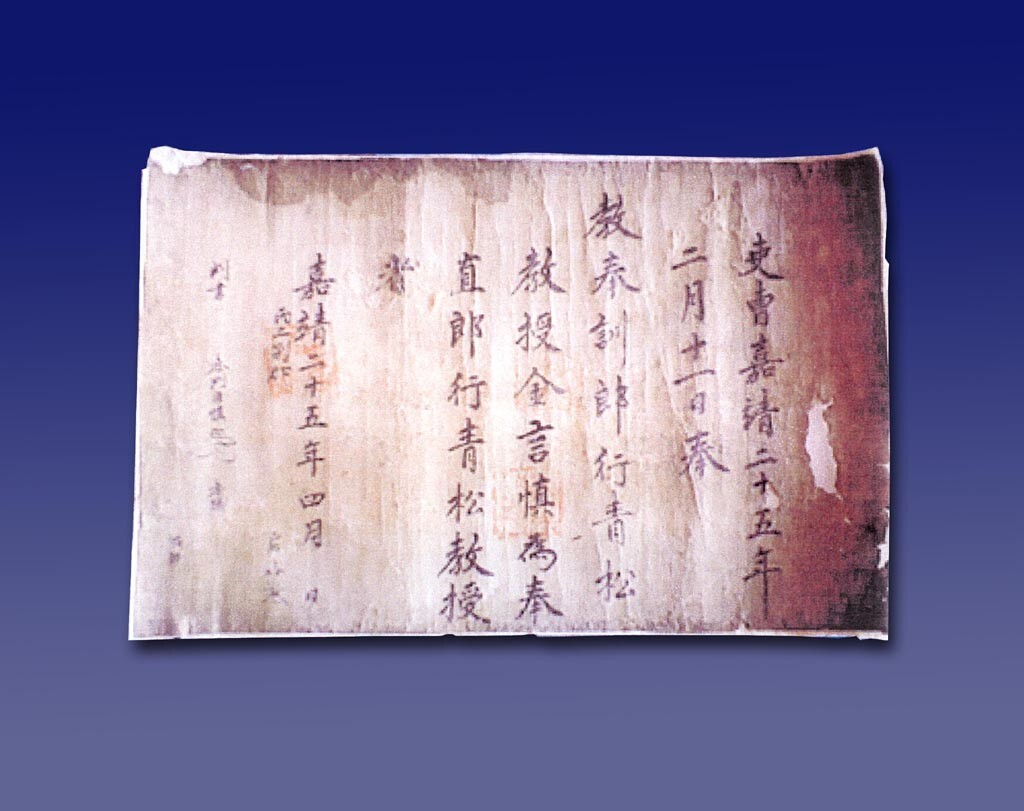 吏曹嘉靖二十五年
二月十一日奉
教奉訓郎行青松
教授金言慎為奉
直郎行青松教授
者
嘉靖二十五年四月 日